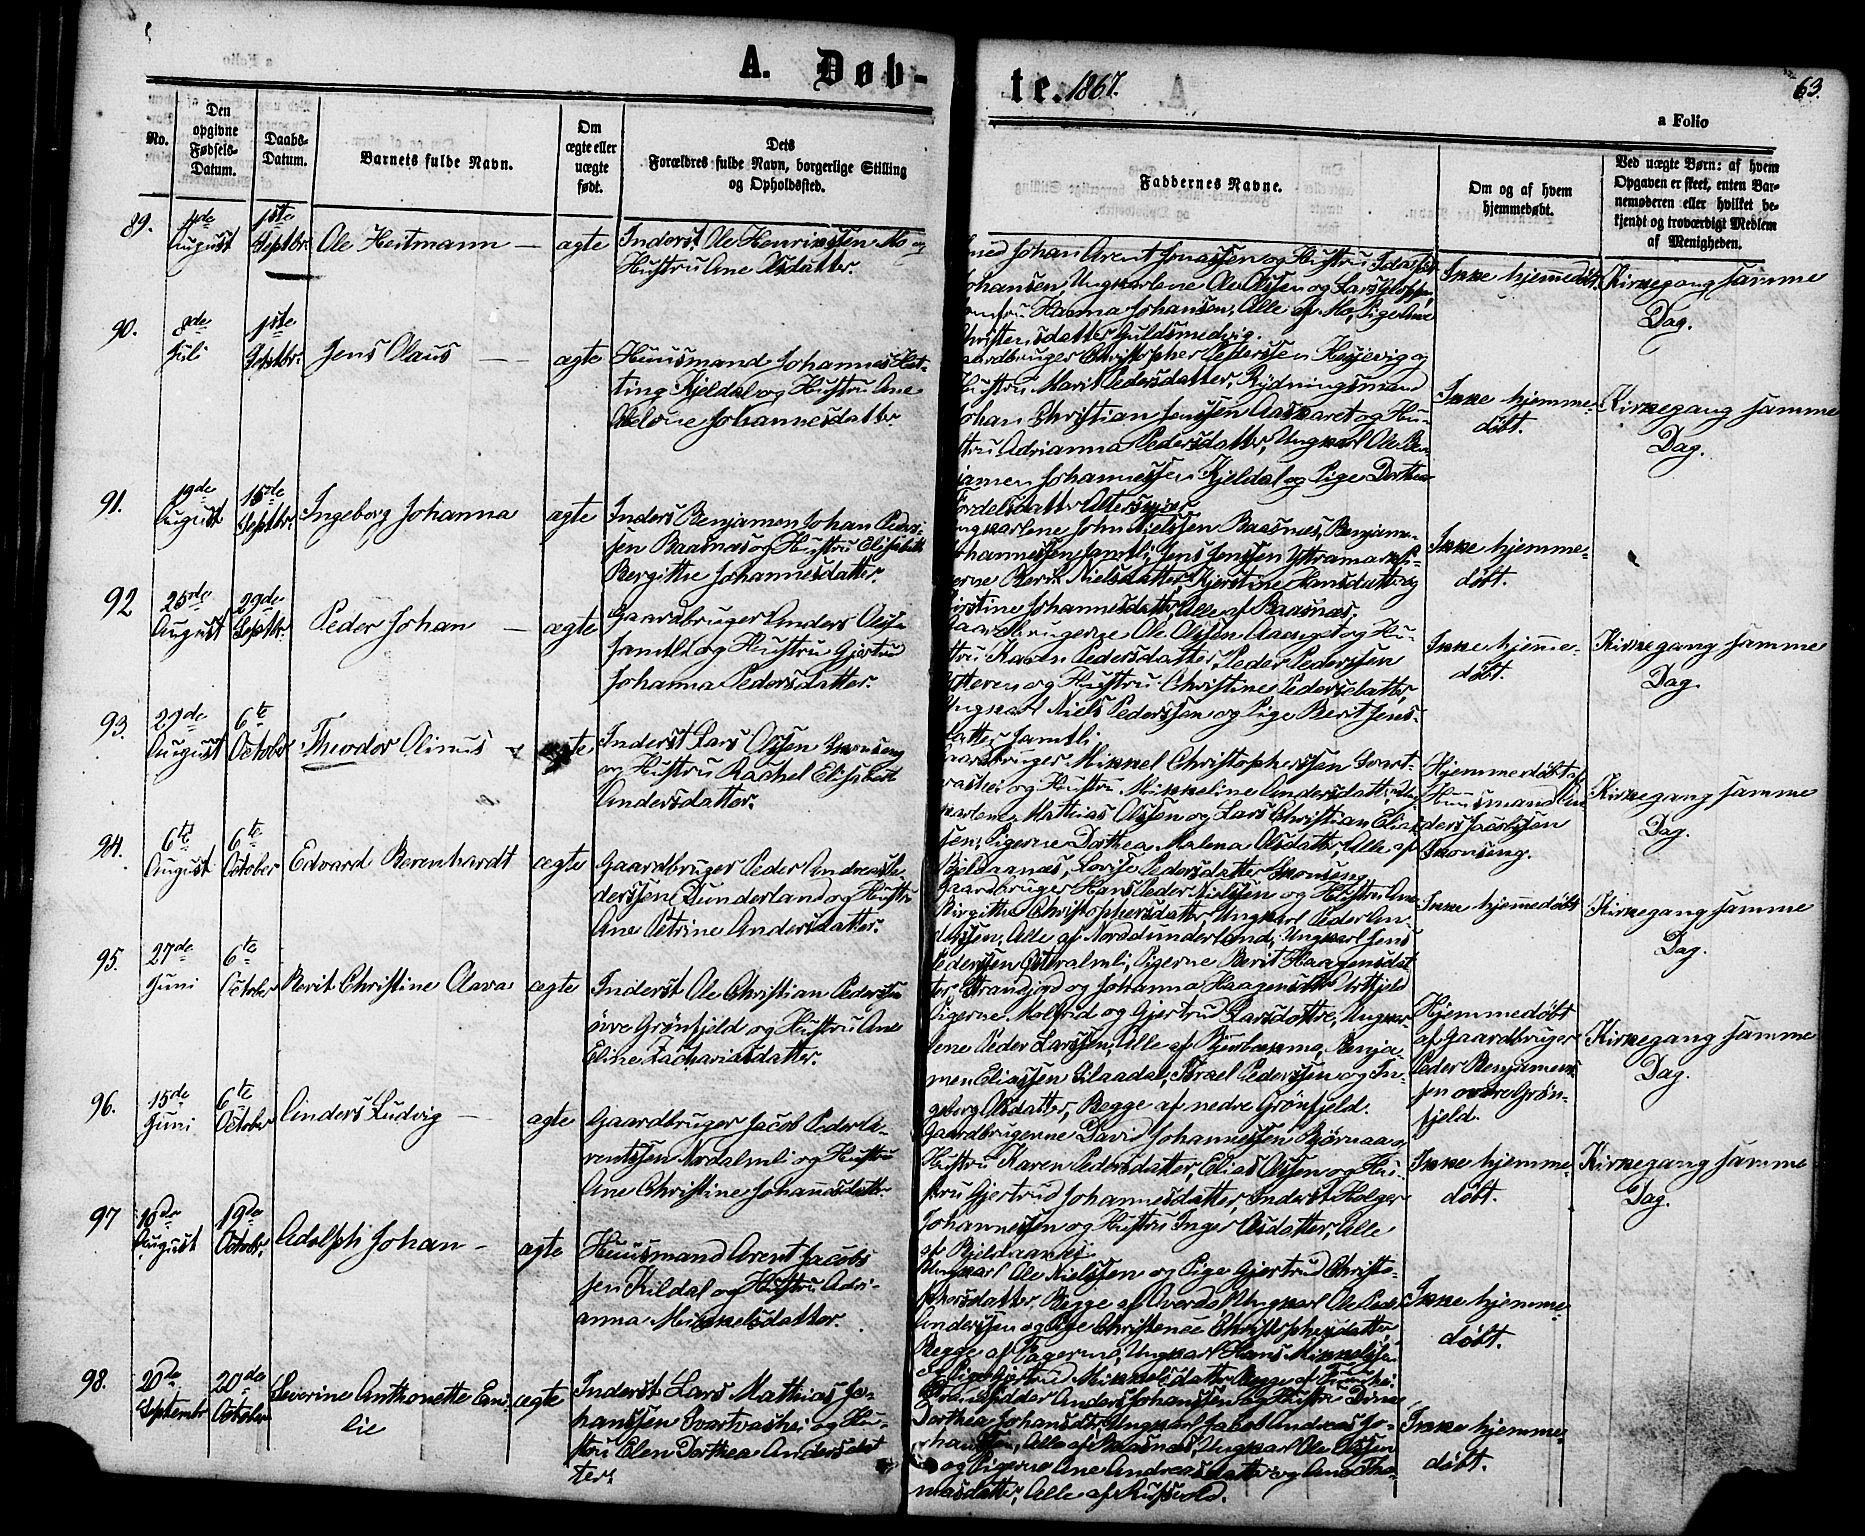 A. Døb-
te. 1867.
63.
a Folio
No.
Den opgivne Fødsels-Datum.
Daabs-Datum.
Barnets fulde Navn.
Om ægte eller uægte født.
Dets Forældres fulde Navn, borgerlige Stilling og Opholdssted.
Faddernes Navne.
Om og af hvem hjemmedøbt.
Ved uægte Børn: af hvem Opgaven er skeet, enten Barnemoderen eller hvilket bekjendt og troværdigt Medlem af Menigheden.
89.
August
1ste Septbr.
Ole Heitmann
ægte
Inderst Ole Henrikssen Mo og
Hustru Ane Olsdatter.
Johan Arent Jonassen og Hustru
Johansen, Ungkarlene Ole Olssen og Lars
Hanna Johansen, Alle af Mo, Pige Ane
Christensdatter Guldsmedvig.
Ikke hjemmedøbt.
Kirkegang samme
Dag.
90.
8de Juli
1ste Septbr.
Jens Olaus
ægte
Huusmand Johannes Het-
ting Kjeldal og Hustru Ane
Johannesdatter.
Gaardbruger Christopher Pedersen
Hustru Marit Pedersdatter, Rydningsmand
Johan Christian Jenssen Aaskaret og Hu-
stru Adrianna Pedersdatter, Ungkarl Ole Ben-
jamen Johannessen Kjeldal og Pige Dorthea
Ikke hjemme-
døbt.
Kirkegang samme
Dag.
91.
19de August
15de Septbr.
Ingeborg Johanna
ægte
Inderst Benjamen Johan Peder-
sen Baasnes og Hustru Elisabeth
Bergitte Johannesdatter.
Ungkarlene John Nielssen Baasnes, Benjamen
Johannessen Jamtli, Jens Jenssen Yttramark, Pi-
gerne Berit Nielsdatter, Kjerstine Hansdatter og
Kirstine Johannesdatter, Alle af Baasnes.
Ikke hjemme-
døbt.
92
25de August
29de Septbr.
Peder Johan
ægte
Gaardbruger Anders Olss.
Jamtli og Hustru Gjertrud
Johanna Pedersdatter.
Gaardbrugerne Ole Olssen Aaenget og Hu-
stru Karen Pedersdatter, Peder Pederssen
og Hustru Christine Pedersdatter,
Ungkarl Niels Pederssen og Pige Berit Jens-
datter Jamtli.
Ikke hjemme-
døbt.
Kirkegang samme
Dag.
93.
29de August
6te October
Theodor Olinus
ægte
Inderst Lars Olssen Skonseng
og Hustru Rachel Elisabeth
Andersdatter.
Gaardbruger Mikkel Christopherssen Svart-
vashei og Hustru Mikkeline Andersdatter, Ung-
karlene Mathias Olssen og Lars Christian Elias-
sen, Pigerne Dorthea Malena Olsdatter, Alle af
Bjeldaanes, Lovise Pedersdatter Skonseng.
Hjemmedøbt af
Huusmand An-
ders Jacobssen
Skonseng.
Kirkegang samme
Dag.
94.
6te August
6te October
Edvard Berenhardt
ægte
Gaardbruger Peder Andreas Pe-
derssen Dunderland og Hustru
Ane Petrine Andersdatter.
Gaardbruger Hans Peder Nielssen og Hustru Ane
Birgitta Christophersdatter, Ungkarl Peder An-
derssen, Alle af Norddunderland, Ungkarl Jens
Pederssen Østeralmli, Pigerne Berit Haagensdat-
ter Strandjord og Johanna Haagensdtr.
Ikke hjemmedøbt
Kirkegang samme
Dag.
95.
27de Juni
6te October
Berit Christine Olava
ægte
Inderst Ole Christian Pederssen
øvre Grønfjeld og Hustru Ane
Eline Zachariasdatter.
Pigerne Molfrid og Gjertrud Larsdøttre, Ungkar-
lene Peder Larssen, Alle af Bjerbakmo, Benja-
men Eliassen Plaadal, Israel Pederssen og In-
geborg Olsdatter, Begge af nedre Grønfjeld.
Hjemmedøbt
af Gaardbruger
Peder Benjamens-
sen øvre Grøn-
fjeld.
Kirkegang samme
Dag.
96.
15de Juni
6te October
Anders Ludvig
ægte
Gaardbruger Jacob Peder A-
rentssen Nordalmli og Hustru
Ane Christine Johannesdatter
Gaardbrugerne David Johannessen Bjørnaa og
Hustru Karen Pedersdatter, Elias Olssen og Hu-
stru Gjertrud Johannesdatter, Inderst Holger
Johannessen og Hustru Inger Olsdatter, Alle
af Bjeldaanes.
Ikke hjemme-
døbt.
Kirkegang samme
Dag.
97
August
19de Octobr.
Adolph Johan
ægte
Huusmand Arent Jacobs-
sen Kildal og Hustru Adri-
anna Mikkelsdatter.
Ungkarl Ole Nielssen og Pige Gjertrud Christo-
phersdatter, Begge af Øverdal, Ungkarl Ole Peder
Anderssen og Pige Christence Christophersdatter,
Begge af Fagermo, Ungkarl Hans Mikkelssen
og Pige Gjertrud Mikkelsdatter, Begge af
Ikke hjemme-
døbt.
98.
20de Septembr
20de October
Severine Anthonette Emi-
lie
ægte
Inderst Lars Mathias Jo-
hanssen Svartvashei og Hu-
stru Elen Dorthea Andersdat-
ter.
Anders Johanssen og Hustru
Dorthea Johansdtr, Ungkarl Jacob Andreas Jo-
hanssen, Alle af Baasnes, Ungkarl Ole Olssen
og Pigerne Ane Andreasdatter og Ane Tho-
masdatter, Alle af Rusvold.
Ikke hjemme-
døbt.